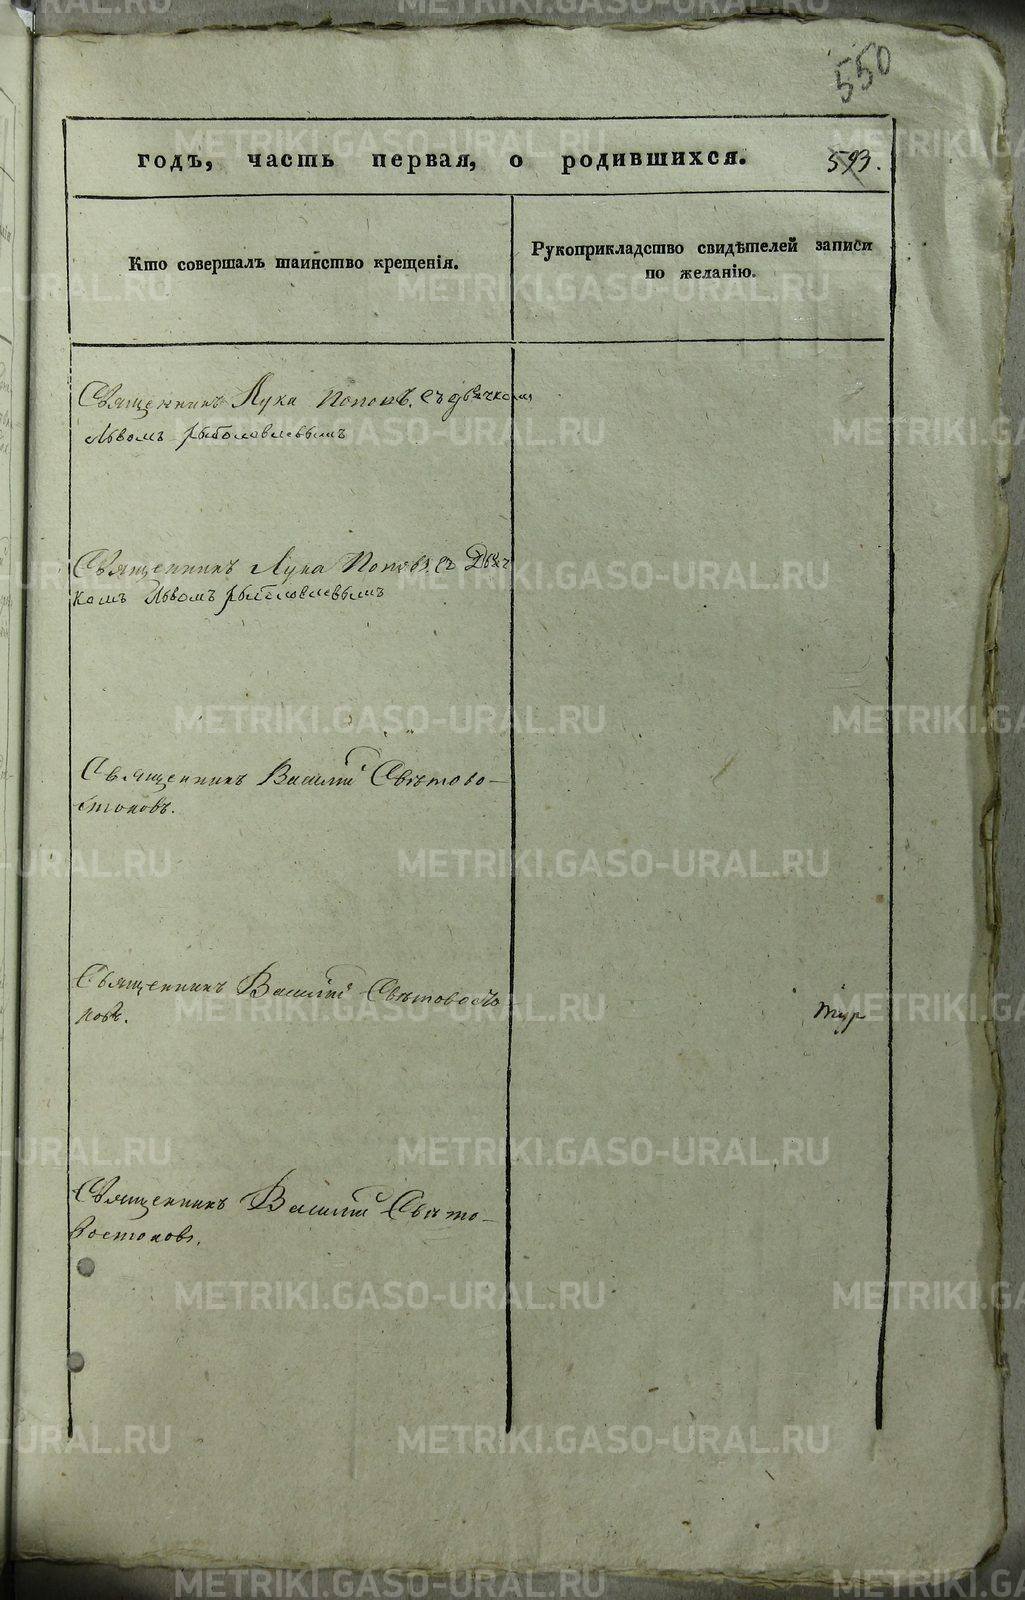 550
годъ, часть первая, о родившихся. 593.
Кто совершалъ таинство крещенія.
Рукоприкладство свидѣтелей записи
по желанію.
Священникъ Лука Поповъ. съ дьячкомъ
Львомъ Рыболовлевымъ
Священникъ Лука Поповъ съ Дьяч
комъ Львомъ Рыболовлевымъ
Священникъ Василій Свѣтово-
стоковъ.
Священникъ Василій Свѣтовосто
ковъ.
Священникъ Василій Свѣто-
востоковъ.
METRIKI.GASO-URAL.RU